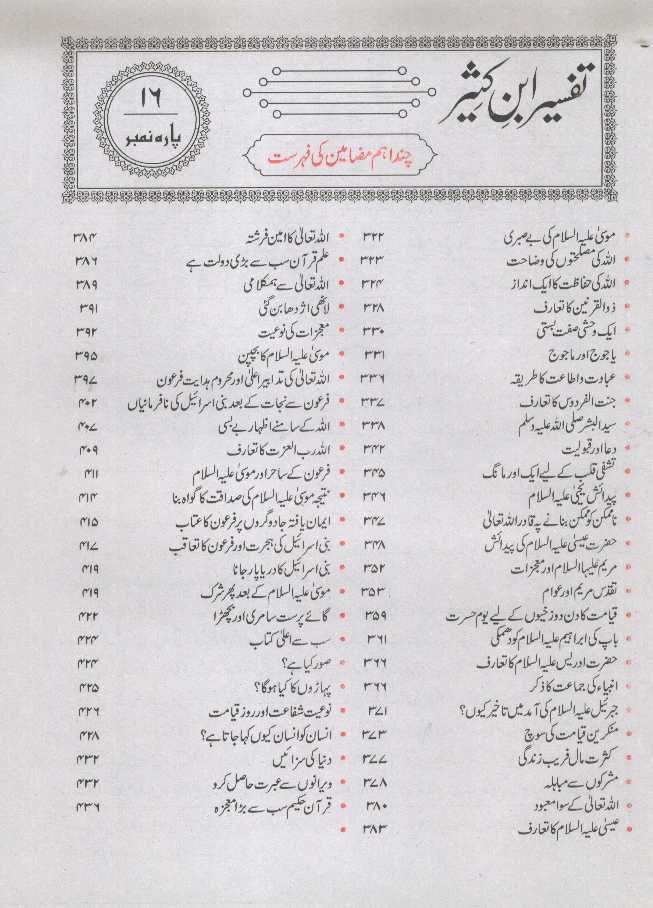 تفسیر ابنِ کثیر
۱۶
پارہ نمبر
چند اہم مضامین کی فہرست
موسیٰ علیہ السلام کی بے صبری ۳۲۲
اللہ کی مصلحتوں کی وضاحت ۳۲۳
اللہ کی حفاظت کا ایک انداز ۳۲۴
ذوالقرنین کا تعارف ۳۲۸
ایک وحشی صفت بستی ۳۳۰
یاجوج اور ماجوج ۳۳۱
عبادت و اطاعت کا طریقہ ۳۳۶
جنت الفردوس کا تعارف ۳۳۷
سید البشر صلی اللہ علیہ وسلم ۳۳۸
دعا اور قبولیت ۳۴۲
تشفی قلب کے لیے ایک اور مانگ ۳۴۵
پیدائش یحییٰ علیہ السلام ۳۴۶
ناممکن کو ممکن بنانے پہ قادر اللہ تعالیٰ ۳۴۷
حضرت عیسیٰ علیہ السلام کی پیدائش ۳۴۸
مریم علیہا السلام اور معجزات ۳۵۲
تقدس مریم اور عوام ۳۵۳
قیامت کا دن دوزخیوں کے لیے یوم حسرت ۳۵۹
باپ کی ابراہیم علیہ السلام کو دھمکی ۳۶۱
حضرت ادریس علیہ السلام کا تعارف ۳۶۶
انبیاء کی جماعت کا ذکر ۳۶۶
جبرئیل علیہ السلام کی آمد میں تاخیر کیوں؟ ۳۷۱
منکرین قیامت کی سوچ ۳۷۳
کثرت مال فریب زندگی ۳۷۷
مشرکوں سے مباہلہ ۳۷۸
اللہ تعالیٰ کے سوا معبود ۳۸۰
عیسیٰ علیہ السلام کا تعارف ۳۸۳
اللہ تعالیٰ کا امین فرشتہ ۳۸۴
علم قرآن سب سے بڑی دولت ہے ۳۸۶
اللہ تعالیٰ سے ہمکلامی ۳۸۹
لاٹھی اژدھا بن گئی ۳۹۱
معجزات کی نوعیت ۳۹۲
موسیٰ علیہ السلام کا بچپن ۳۹۵
اللہ تعالیٰ کی تدابیر اعلیٰ اور محروم ہدایت فرعون ۳۹۷
فرعون سے نجات کے بعد بنی اسرائیل کی نافرمانیاں ۴۰۲
اللہ کے سامنے اظہار بے بسی ۴۰۷
اللہ رب العزت کا تعارف ۴۰۹
فرعون کے ساحر اور موسیٰ علیہ السلام ۴۱۱
نتیجہ موسیٰ علیہ السلام کی صداقت کا گواہ بنا ۴۱۴
ایمان یافتہ جادوگروں پر فرعون کا عتاب ۴۱۵
بنی اسرائیل کی ہجرت اور فرعون کا تعاقب ۴۱۷
بنی اسرائیل کا دریا پار جانا ۴۱۹
موسیٰ علیہ السلام کے بعد پھر شرک ۴۱۹
گائے پرست سامری اور بچھڑا ۴۲۲
سب سے اعلیٰ کتاب ۴۲۴
صور کیا ہے؟ ۴۲۴
پہاڑوں کا کیا ہوگا؟ ۴۲۵
نوعیت شفاعت اور روز قیامت ۴۲۶
انسان کو انسان کیوں کہا جاتا ہے؟ ۴۲۸
دنیا کی سزائیں ۴۳۲
ویرانوں سے عبرت حاصل کرو ۴۳۲
قرآن حکیم سب سے بڑا معجزہ ۴۳۶